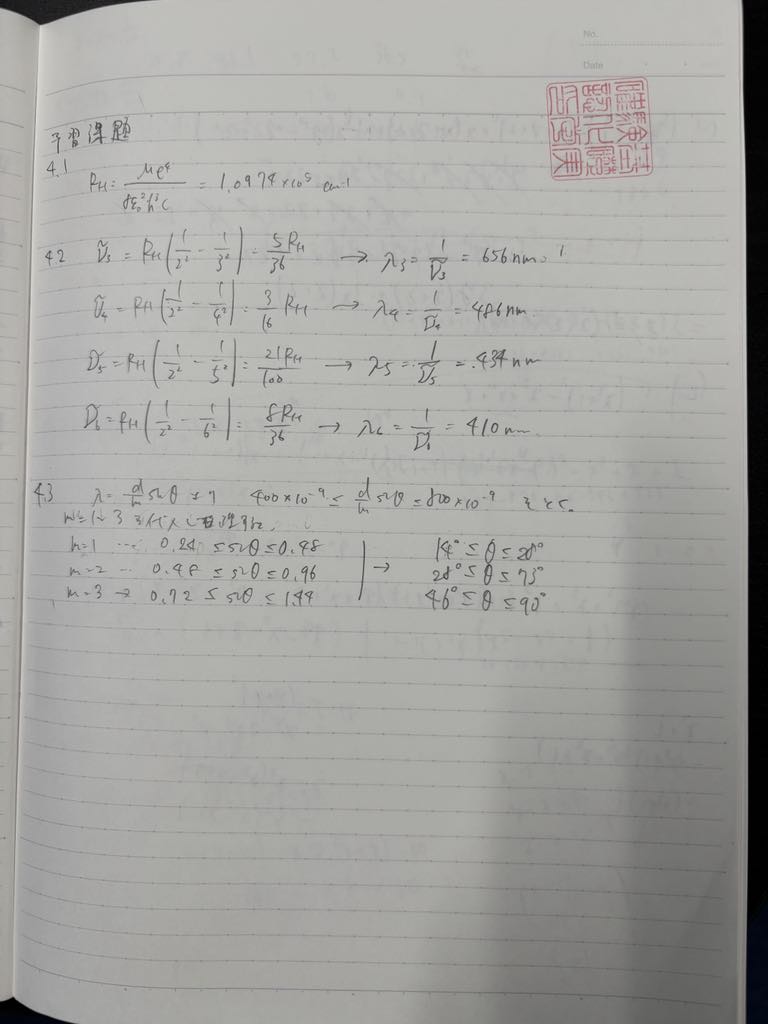 No.
Date
予習課題
4.1
R_H = μe⁴ / 8ε₀²h³c = 1.0974×10⁵ cm⁻¹
4.2 ν̃₃ = R_H(1/2² − 1/3²) = 5R_H/36 → λ₃ = 1/ν̃₃ = 656nm
ν̃₄ = R_H(1/2² − 1/4²) = 3/16 R_H → λ₄ = 1/ν̃₄ = 486nm
ν̃₅ = R_H(1/2² − 1/5²) = 21R_H/100 → λ₅ = 1/ν̃₅ = 434nm
ν̃₆ = R_H(1/2² − 1/6²) = 8R_H/36 → λ₆ = 1/ν̃₆ = 410nm.
4.3 λ = d/m sinθ より 400×10⁻⁹ ≤ d/m sinθ ≤ 800×10⁻⁹ をとく。
m=1~3を代入し
m=1 … 0.24 ≤ sinθ ≤ 0.48 → 14° ≤ θ ≤ 28°
m=2 … 0.48 ≤ sinθ ≤ 0.96 28° ≤ θ ≤ 73°
m=3 → 0.72 ≤ sinθ ≤ 1.44 46° ≤ θ ≤ 90°